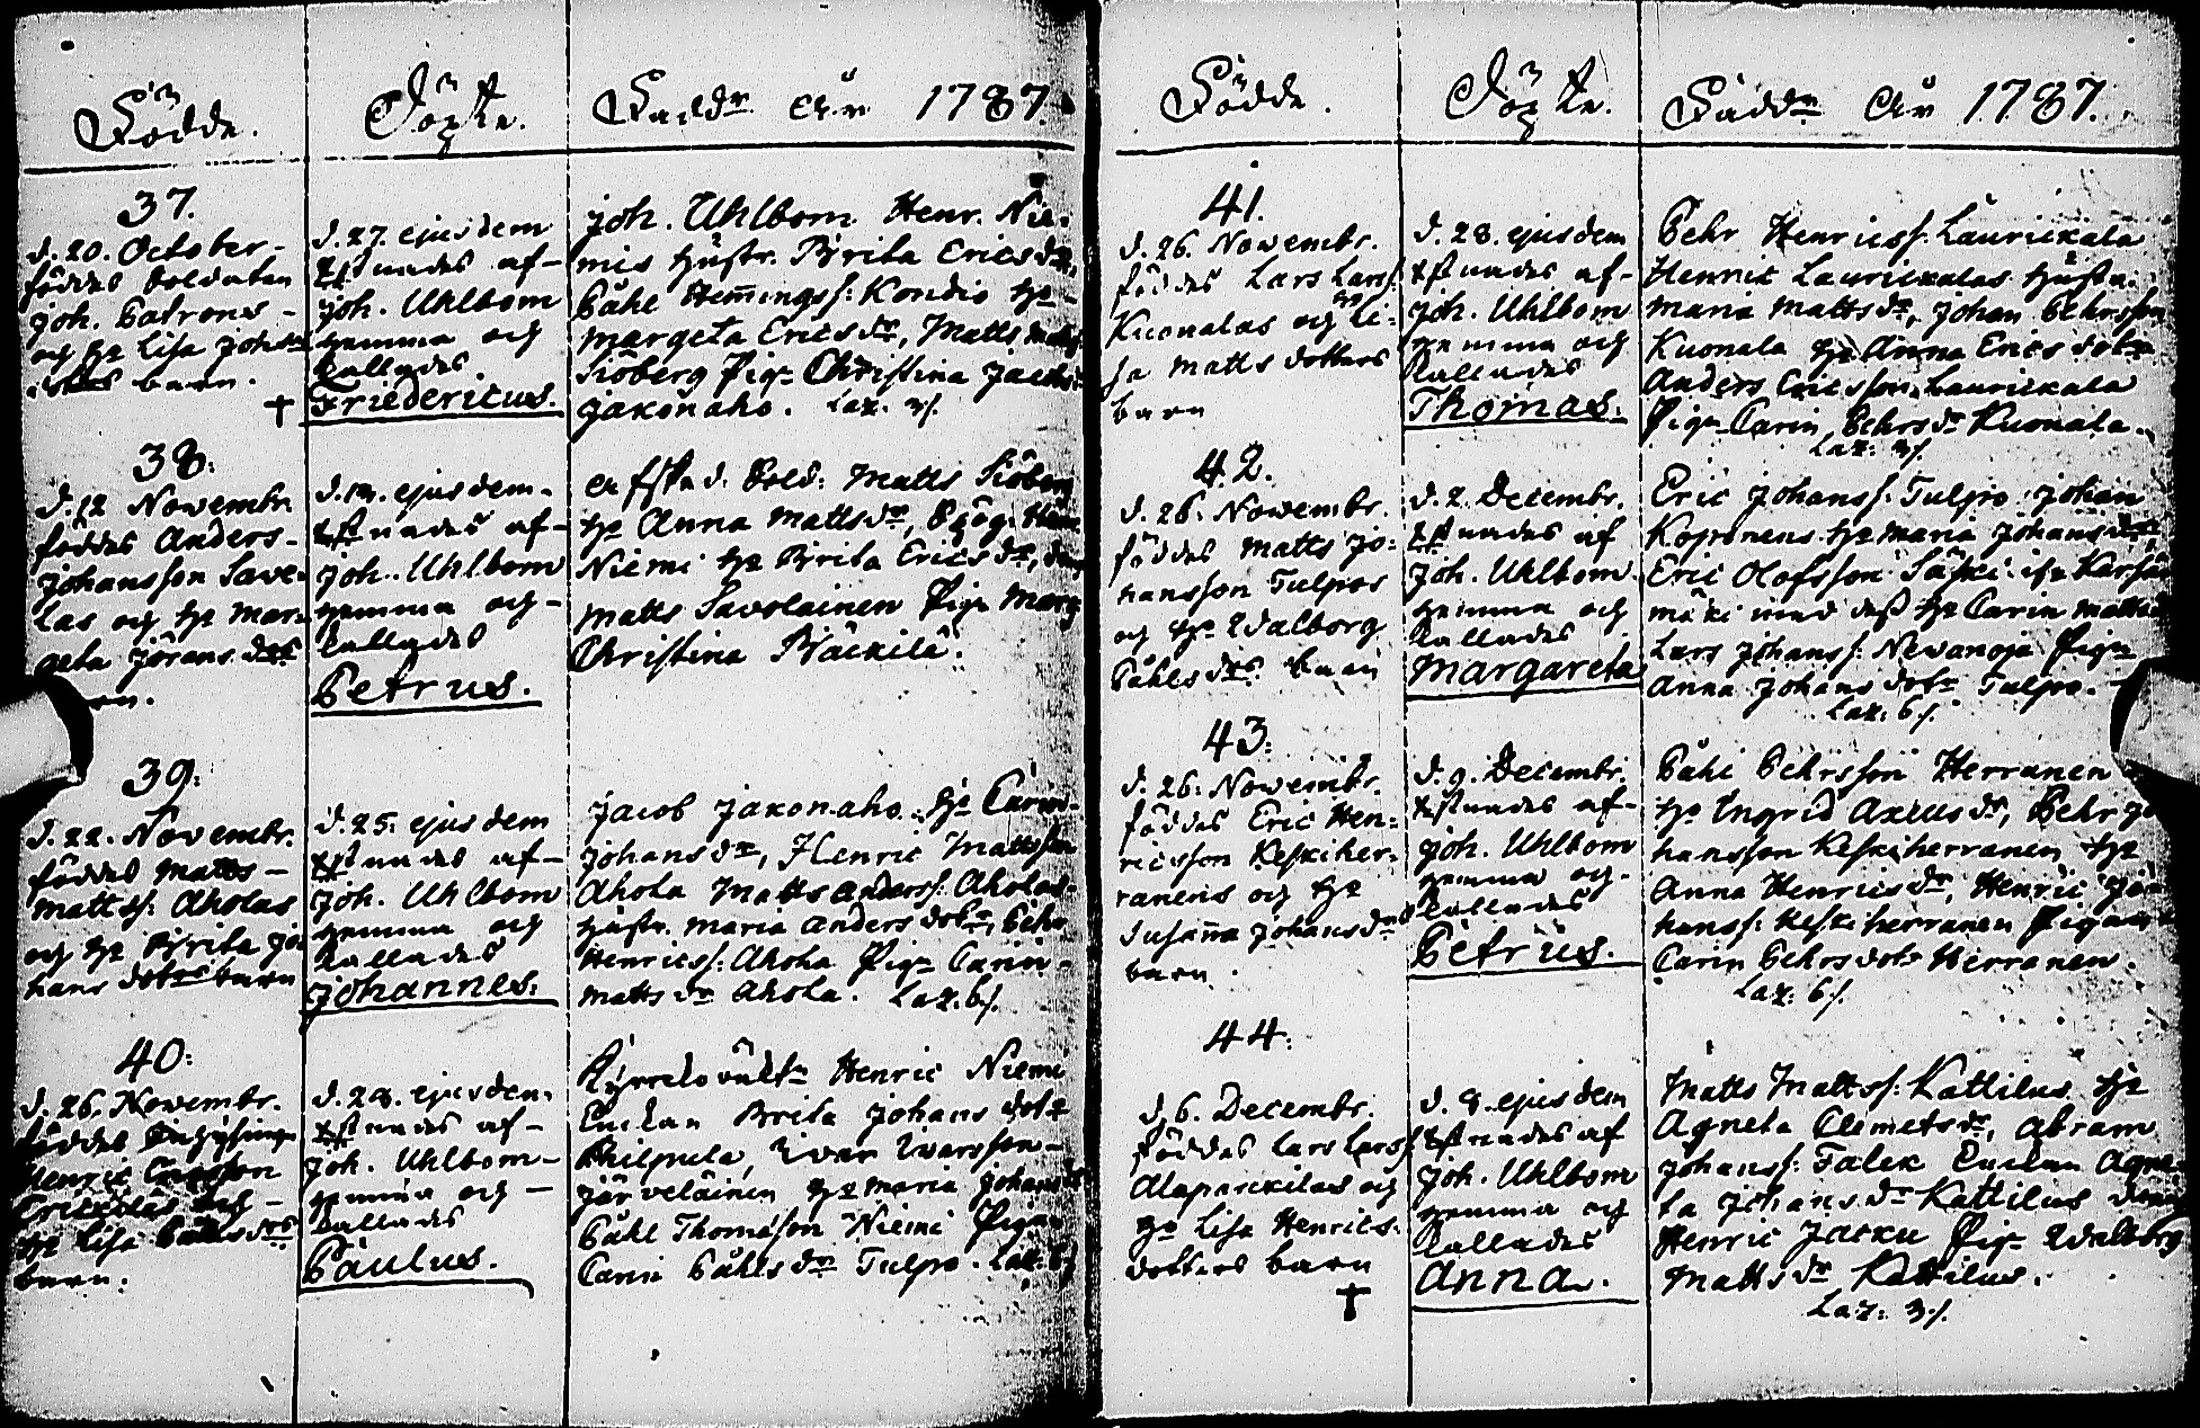 Födde.
Döpte.
Fadd:r År 1787.
37.
d. 20. October
föddes Soldaten
Joh. Patrons
och h:u Lisa Johs
barn.
†
d. 27. ejusdem
xstnades af
Joh. Uhlbom
hemma och
kallades
Friedericus.
Joh. Uhlbom Henr. Nie-
mis hustr. Brita Ericsd:r,
Påhl Hemmingss: Kondio h:u
Margeta Ericsd:r, Matts Matts
Siöberg Pig: Christina Jacobs
Jakonaho. Laz. 3/.
38.
d. 12 Novembr.
föddes Anders
Johansson Save-
las och h:u Mar-
geta Jörans d:rs
d. 13. ejusdem
xstnades af
Joh. Uhlbom
hemma och
kallades
Petrus.
Sold: Matts Siöberg
h:u Anna Mattsd:r,
Niemi h:u Brita Ericsd:r,
Matts Savolainen Pig: Marg
Christina Bäckilä.
39:
d. 22. Novembr.
föddes Matts
Mattss: Aholas
och h:u Brita Jo-
hans dotrs barn
d. 25. ejusdem
xstnades af
Joh. Uhlbom
hemma och
kallades
Johannes.
Jacob Jakonaho. h:u Carin
Johansd:r, Henric Mattsson
Ahola Matts Anderss: Aholas
hustr. Maria Anders dot:r, Pehr
Henricss: Ahola Pig: Carin
Mattsd:r Ahola. Laz. 6/.
40:
d. 26. Novembr.
föddes
Henric
Erickilas och
h:u Lisa Påhlsd:rs
barn.
d. 28. ejusdem
xstnades af
Joh. Uhlbom
hemma och
kallades
Paulus.
Henric Niemi
Enckan Brita Johans dot:r
Philpula, Ivar Ivarsson
Järveläinen h:u Maria Johans
Påhl Thomasson Niemi Pigan
Carin Påhlsd:r Tulpo. Laz. 6/
Födde.
Döpte.
Fadd:r År 1787.
41.
d. 26. Novembr.
föddes Lars Larss:
Kuonalas och h:u Li-
sa Matts dotters
barn
d. 28. ejusdem
xstnades af
Joh. Uhlbom
hemma och
kallades
Thomas.
Pehr Henricss: Laurickala
Henric Laurickalas hustru
Maria Mattsd:r, Johan Pehrsson
Kuonala h:u Anna Erics dot:r
Anders Ericsson Laurickala
Pig: Carin Pehrsd:r Kuonala.
Laz: 3/.
42.
d. 26. Novembr.
föddes Matts Jo-
hansson Tulpos
och h:u Walborg
Påhlsd:rs barn
d. 2. Decembr.
xstnades af
Joh. Uhlbom
hemma och
kallades
Margareta
Eric Johanss: Tulpo Johan
Koponens h:u Maria Johansd:r,
Eric Olofsson Säski
mäki med dess h:u Carin Matts
Lars Johanss: Nevanoja Pig:
Anna Johans dot:r Tulpo.
Laz: 6/.
43:
d. 26. Novembr.
föddes Eric Hen-
ricsson Keskiher-
ranens och h:u
Susanna Johansd:rs
barn.
d. 9. Decembr.
xstnades af
Joh. Uhlbom
hemma och
kallades
Petrus.
Påhl Pehrsson Herranen
h:u Ingrid Axeusd:r, Pehr Jo
hansson Keskiherranen h:u
Anna Henricsd:r, Henric Jo
hanss: Keskiherranen Pigan
Carin Pehrs dot:r Herranen.
Laz: 6/.
44:
d. 6. Decembr.
föddes Lars Larss:
Alapaickilas och
h:u Lisa Henrics-
dotters barn
†
d. 8. ejusdem
xstnades af
Joh. Uhlbom
hemma och
kallades
Anna.
Matts Mattss: Kattilus h:u
Agneta Clemetsd:r, Abram
Johanss: Falck Enckan Agne
ta Johansd:r Kattilus dräng
Henric Jacku Pig: Walborg
Mattsd:r Kattilus.
Laz: 3/.